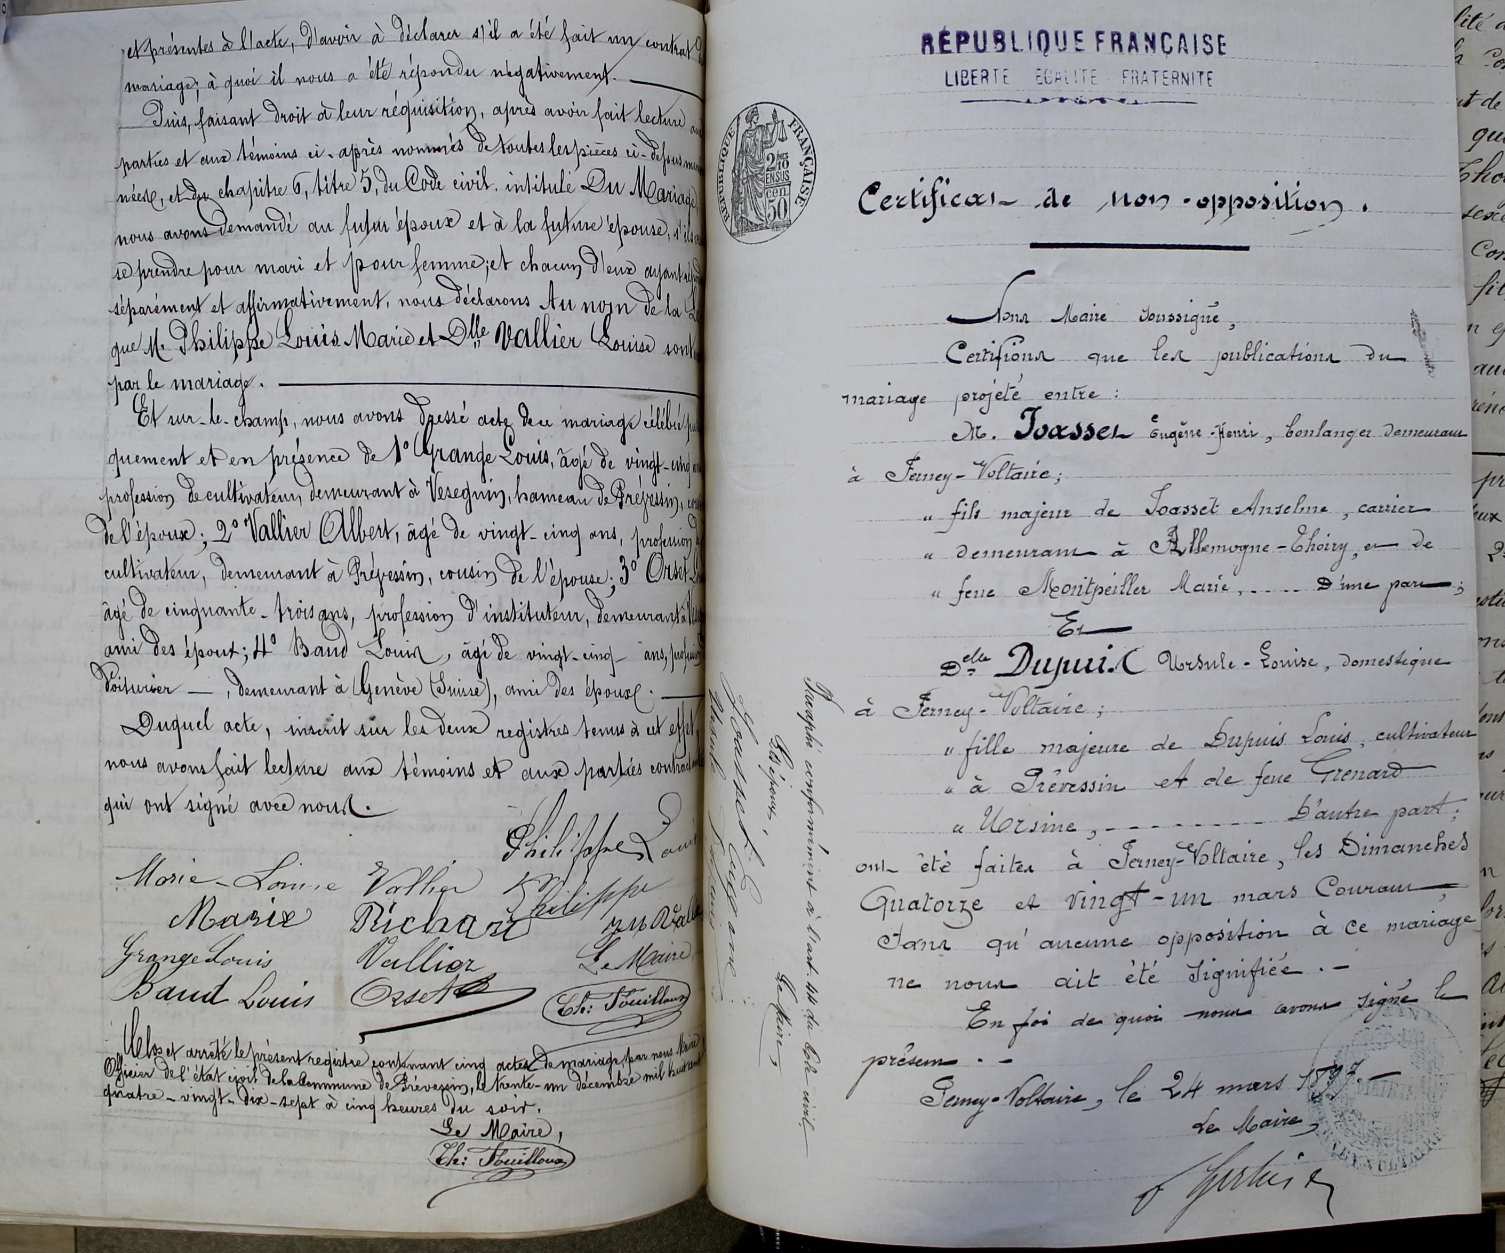 et présentes à l'acte, d'avoir à déclarer s'il a été fait un contrat d
mariage; à quoi il nous a été répondu négativement.
Puis, faisant droit à leur réquisition, après avoir fait lecture au
parties et aux témoins ci-après nommés de toutes les pièces ci-dessus
nées, et du chapitre 6, titre 5, du Code civil, intitulé Du Mariage
nous avons demandé au futur époux et à la future épouse, s'ils
se prendre pour mari et pour femme; et chacun d'eux ayant
séparément et affirmativement, nous déclarons Au nom de la L
que M. Philippe Louis Marie et Dlle Vallier Louise sont
par le mariage.
Et sur-le-champ, nous avons dressé acte de ce mariage célébré
quement et en présence de 1° Grange Louis, âgé de vingt-cinq
profession de cultivateur, demeurant à Vesegnin, hameau de Prévessin,
de l'époux; 2° Vallier Albert, âgé de vingt-cinq ans, profession d
cultivateur, demeurant à Prévessin, cousin de l'épouse; 3° Orset
âgé de cinquante-trois ans, profession d'instituteur, demeurant à
ami des époux; 4° Baud Louis, âgé de vingt-cinq ans,
voiturier —, demeurant à Genève (Suisse), ami des époux.
Duquel acte, inscrit sur les deux registres tenus à cet effet,
nous avons fait lecture aux témoins et aux parties
qui ont signé avec nous.
Philippe Louis
Marie-Louise Vallier Philippe
Marie Richard
Grange Louis Vallier Le Maire
Baud Louis Orset Th: Fouilloux
Clos et arrêté le présent registre contenant cinq actes de mariage par nous Maire
Officier de l'état civil de la Commune de Prévessin, le trente-un décembre mil huit cent
quatre-vingt-dix-sept à cinq heures du soir.
Le Maire,
Th: Fouilloux
RÉPUBLIQUE FRANÇAISE
LIBERTE EGALITE FRATERNITE
RÉPUBLIQUE FRANÇAISE
2/10 EN SUS
50 cen
Certificat de non-opposition.
Nous Maire soussigné,
Certifions que les publications du
mariage projeté entre:
M. Joasset Eugène-Henri, boulanger demeurant
à Ferney-Voltaire;
" fils majeur de Joasset Anselme, carrier
" demeurant à Allemogne-Thoiry, et de
" feue Montpeiller Marie, .... D'une part;
Et
Delle Dupuis Ursule-Louise, domestique
à Ferney-Voltaire;
" fille majeure de Dupuis Louis, cultivateur
" à Prévessin et de feue Grenard
" Ursine, --------- D'autre part;
ont été faites à Ferney-Voltaire, les Dimanches
Quatorze et vingt-un mars Courant,
Sans qu'aucune opposition à ce mariage
ne nous ait été signifiée.-
En foi de quoi nous avons signé le
présent.-
Ferney-Voltaire, le 24 mars 1897.-
Le Maire,
Paraphé conformément à l'art. 44 du Code civil
Les époux, Le Maire,
Joasset Eugène